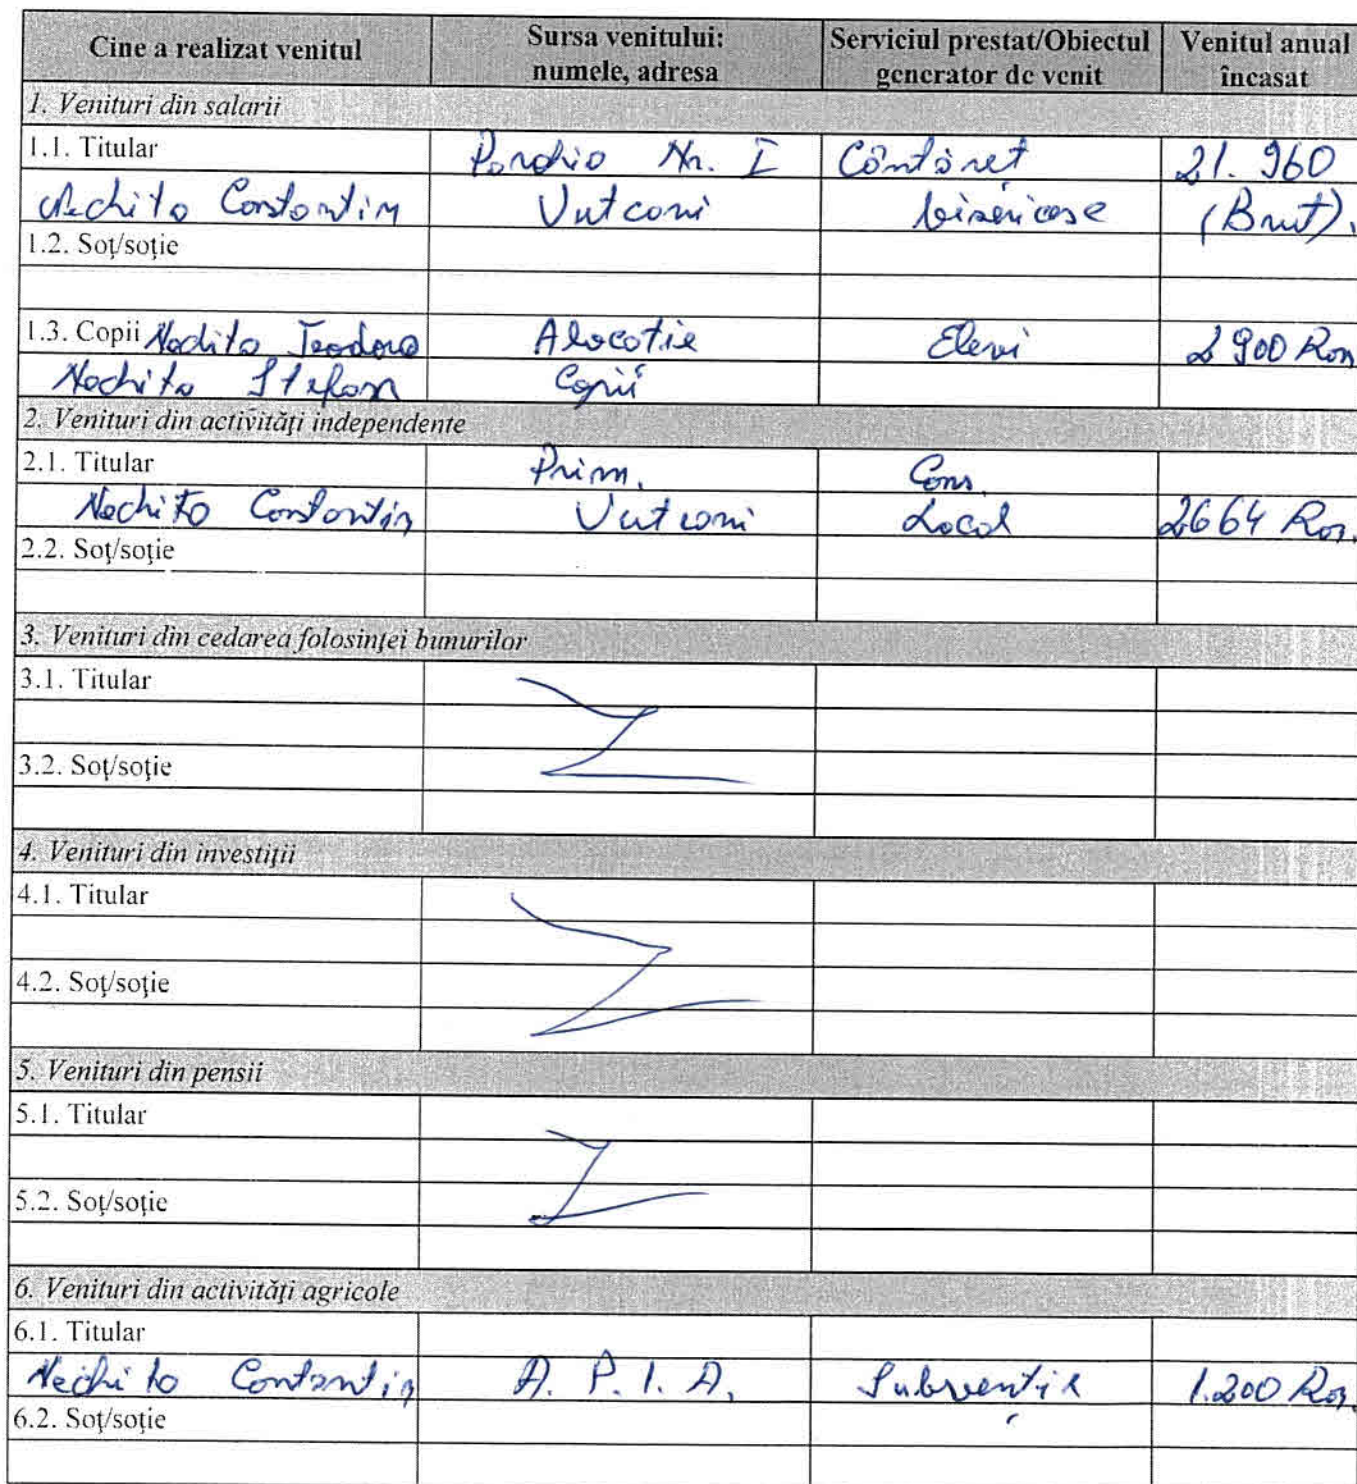 Cine a realizat venitul Sursa venitului: numele, adresa Serviciul prestat/Obiectul generator de venit Venitul anual încasat
1. Venituri din salarii
1.1. Titular Parohia Nr. I Cântăreț 21.960
Nechita Constantin Vutcani bisericesc (Brut).
1.2. Soț/soție
1.3. Copii Nechita Teodora Alocatie Elevi 2900 Ron
Nechita Stefan Copii
2. Venituri din activităţi independente
2.1. Titular Prim. Cons.
Nechita Constantin Vutcani Local 2664 Ron.
2.2. Soţ/soţie
3. Venituri din cedarea folosinţei bunurilor
3.1. Titular
3.2. Soţ/soţie
4. Venituri din investiţii
4.1. Titular
4.2. Soţ/soţie
5. Venituri din pensii
5.1. Titular
5.2. Soţ/soţie
6. Venituri din activităţi agricole
6.1. Titular
Nechita Contantin A. P. I. A. Subvenție 1.200 Ron.
6.2. Soţ/soţie